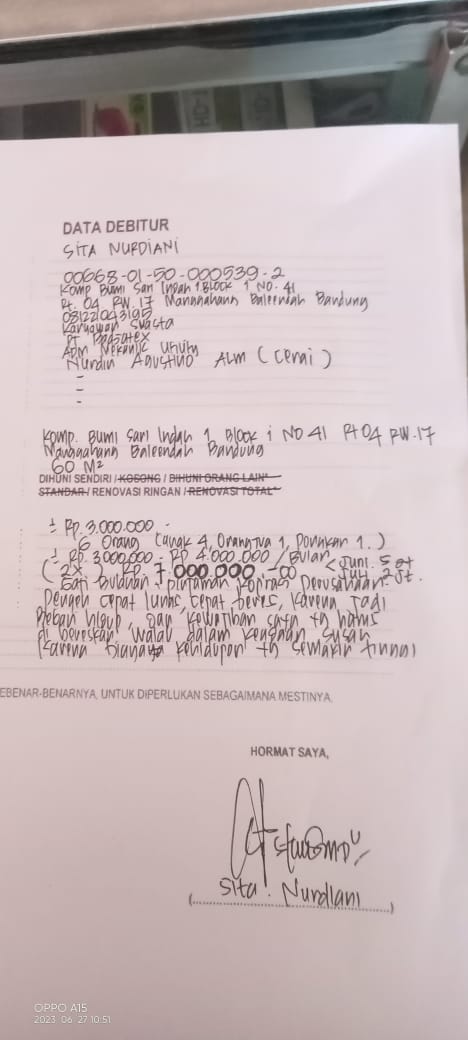 DATA DEBITUR
SITA NURDIANI
00668-01-50-000539-2
Komp Bumi Sari Indah 1 Block 1 NO. 41
Rt. 04 RW. 17 Manggahang Baleendah Bandung
081221043195
Karyawan Swasta
PT
Adm Mekanik Umum
Nurdin Agustino ALM (Cerai)
-
-
-
Komp. Bumi Sari Indah 1 Block i NO 41 Rt 04 RW.17
Manggahang Baleendah Bandung
60 M²
DIHUNI SENDIRI / KOSONG / DIHUNI ORANG LAIN*
STANDAR / RENOVASI RINGAN / RENOVASI TOTAL*
± Rp. 3.000.000.-
6 Orang (anak 4, Orangtua 1, Ponakan 1.)
± Rp. 3.000.000 - Rp 4.000.000 / Bulan
(2x Rp 7.000.000 -00 < Juni. 5 Jt
Juli 2 Jt.
Gaji bulanan + pinjaman Koprasi Perusahaan
Dengan cepat lunas, cepat beres, karena jadi
Beban hidup, dan kewajiban saya yg harus
di bereskan walau dalam keadaan susah
Karena biaya kehidupan yg semakin tinggi
EBENAR-BENARNYA, UNTUK DIPERLUKAN SEBAGAIMANA MESTINYA.
HORMAT SAYA,
Sita Nurdiani
(....................)
OPPO A15
2023/06/27 10:51